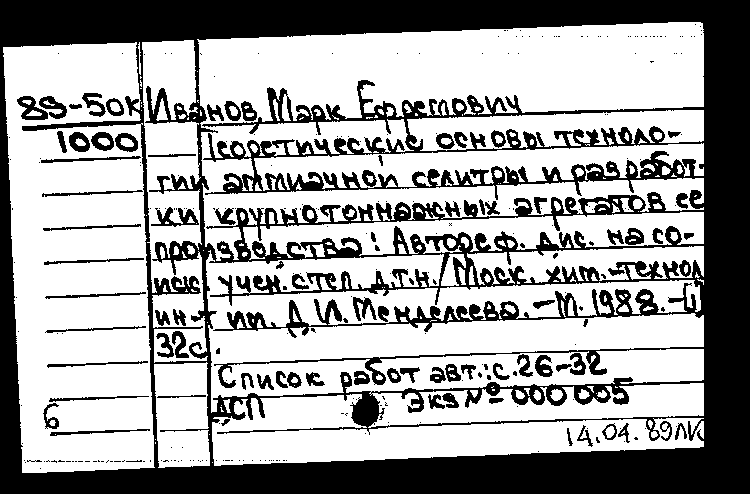 89-50К Иванов, Марк Ефремович
1000 Теоретические основы техноло-
гии аммиачной селитры и разработ-
ки крупнотоннажных агрегатов ее
производства: Автореф. дис. на со-
иск. учен. степ. д.т.н. / Моск. хим.-технол
ин-т им. Д.И. Менделеева. - М., 1988. - [1]
32с.
Список работ авт.: с. 26-32
ДСП Экз № 000005
б
14.04.89ЛК